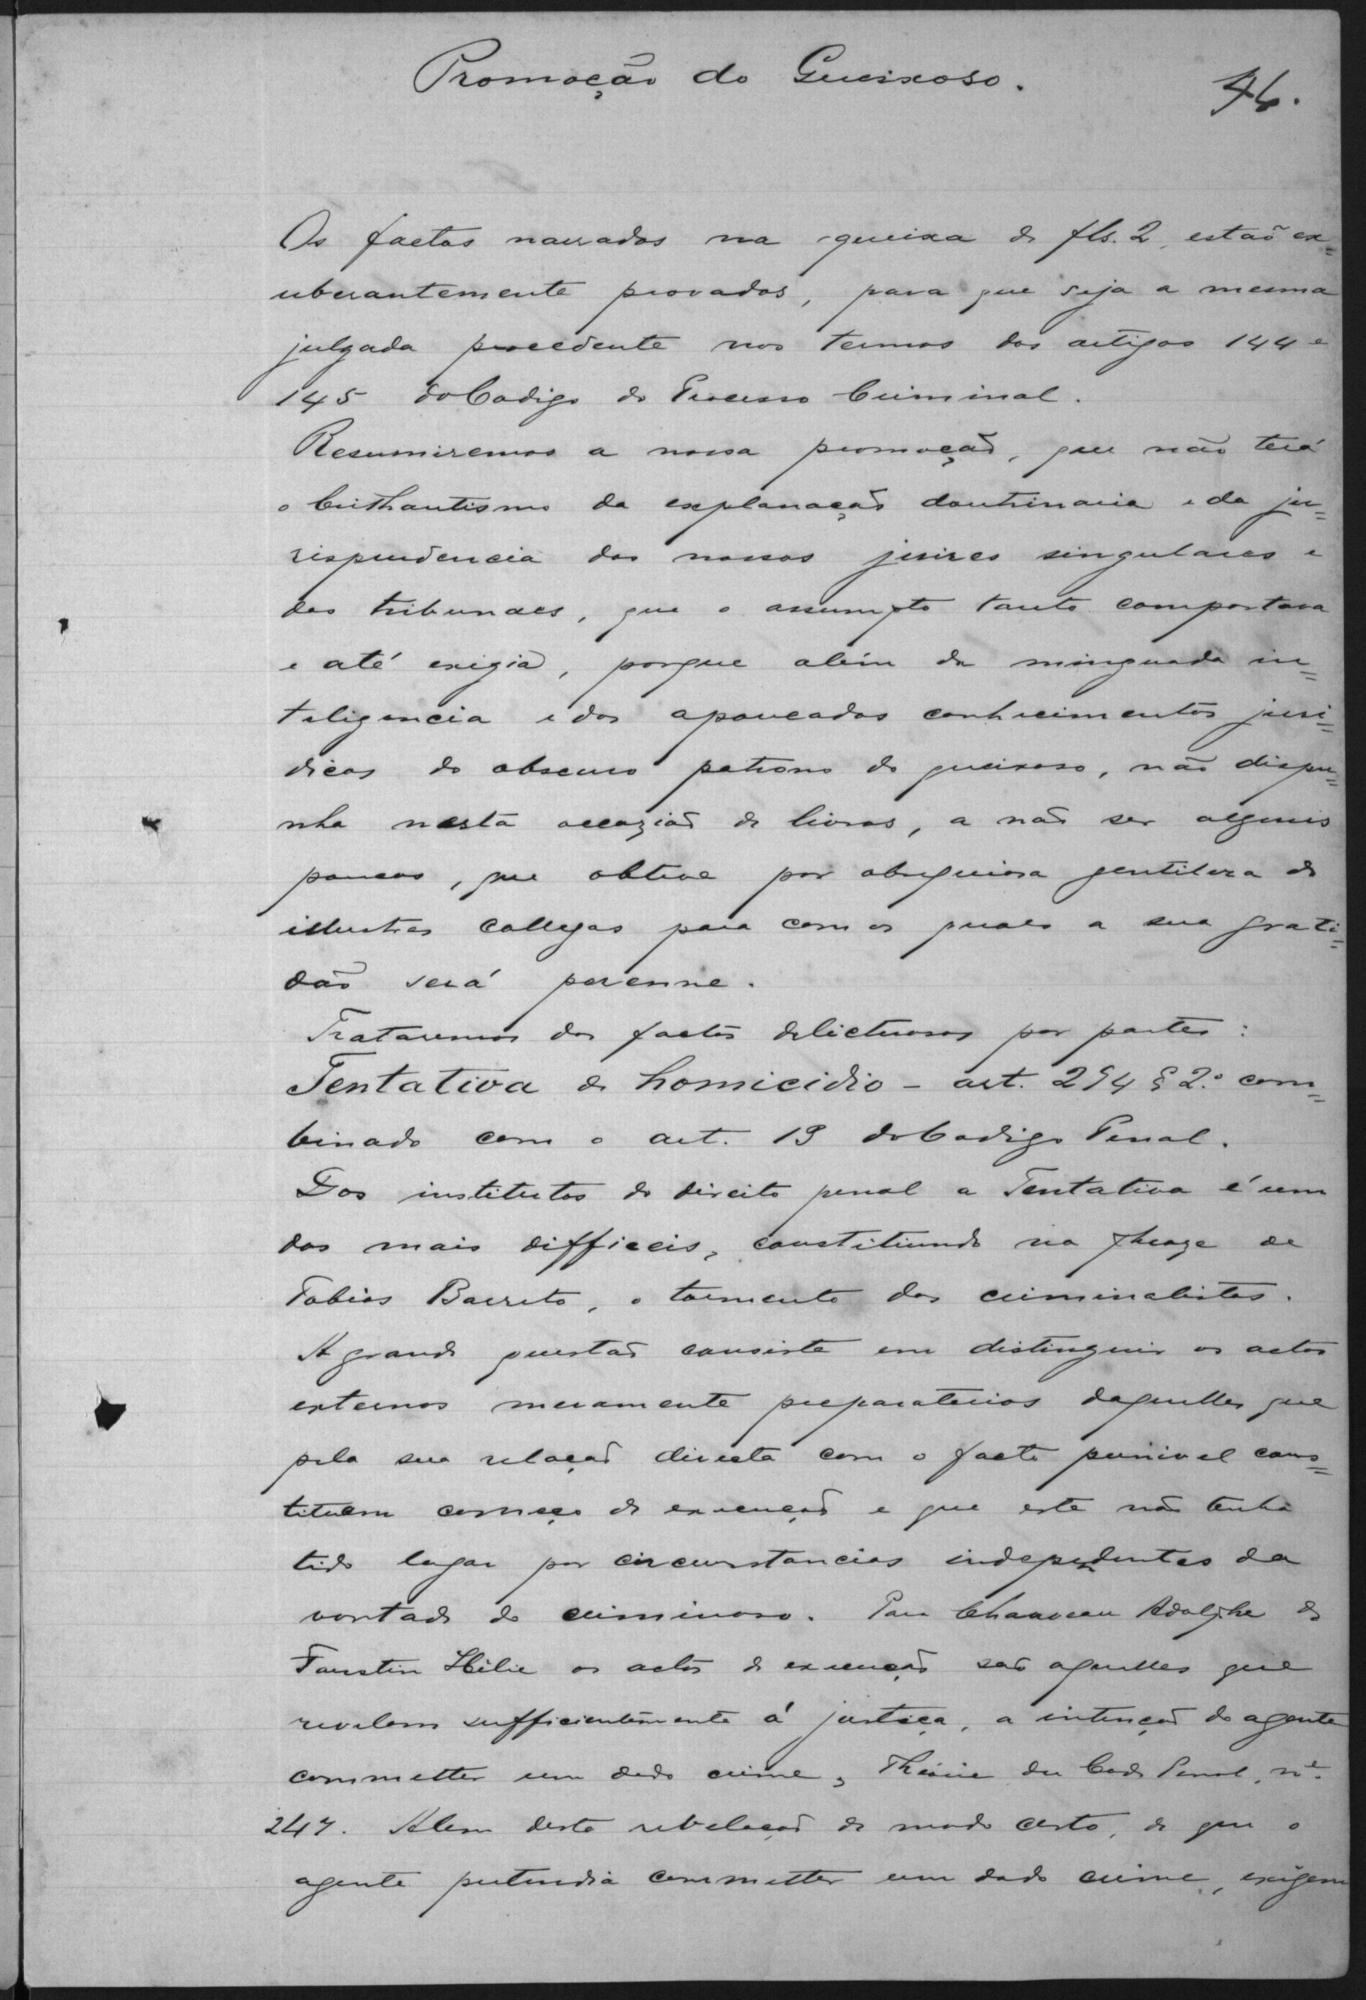 Promoção do Queixoso.
46.
Os factos narrados na queixa de fls. 2, estão ex=
uberantemente provados, para que seja a mesma
julgada procedente nos termos dos artigos 144 e
145 do Codigo do Processo Criminal.
Resumiremos a nossa promoção, que não terá
o brilhantismo da explanação doutrinaria e da ju=
risprudencia dos nossos juizes singulares e
dos tribunaes, que o assumpto tanto comportava
e até exigia, porque além da minguada in=
teligencia e dos apoucados conhecimentos juri=
dicos do obscuro patrono do queixoso, não dispu=
nha nesta occazião de livros, a não ser alguns
poucos, que obteve por obsequiosa gentileza de
illustres collegas para com os quaes a sua grati=
dão será perenne.
Trataremos dos factos delictuosos por partes:
Tentativa de homicidio - art. 294 § 2.º com=
binado com o art. 13 do Codigo Penal.
Dos institutos do direito penal a Tentativa é um
dos mais difficeis, constituindo na phraze de
Tobias Barreto, o tormento dos criminalistas.
A grande questão consiste em distinguir os actos
externos meramente preparatorios daquelles que
pela sua relação directa com o facto punivel cons=
tituem começo de execução e que este não tenha
tido lugar por circumstancias independentes da
vontade do criminoso. Para Chauveau Adolphe de
Faustin Hélie os actos de execução são aquelles que
revelam sufficientemente á justiça, a intenção do agente
commetter um dado crime, Théorie du Code Penal, nº.
247. Alem desta revelação de modo certo, de que o
agente pretendia commetter um dado crime, exigem